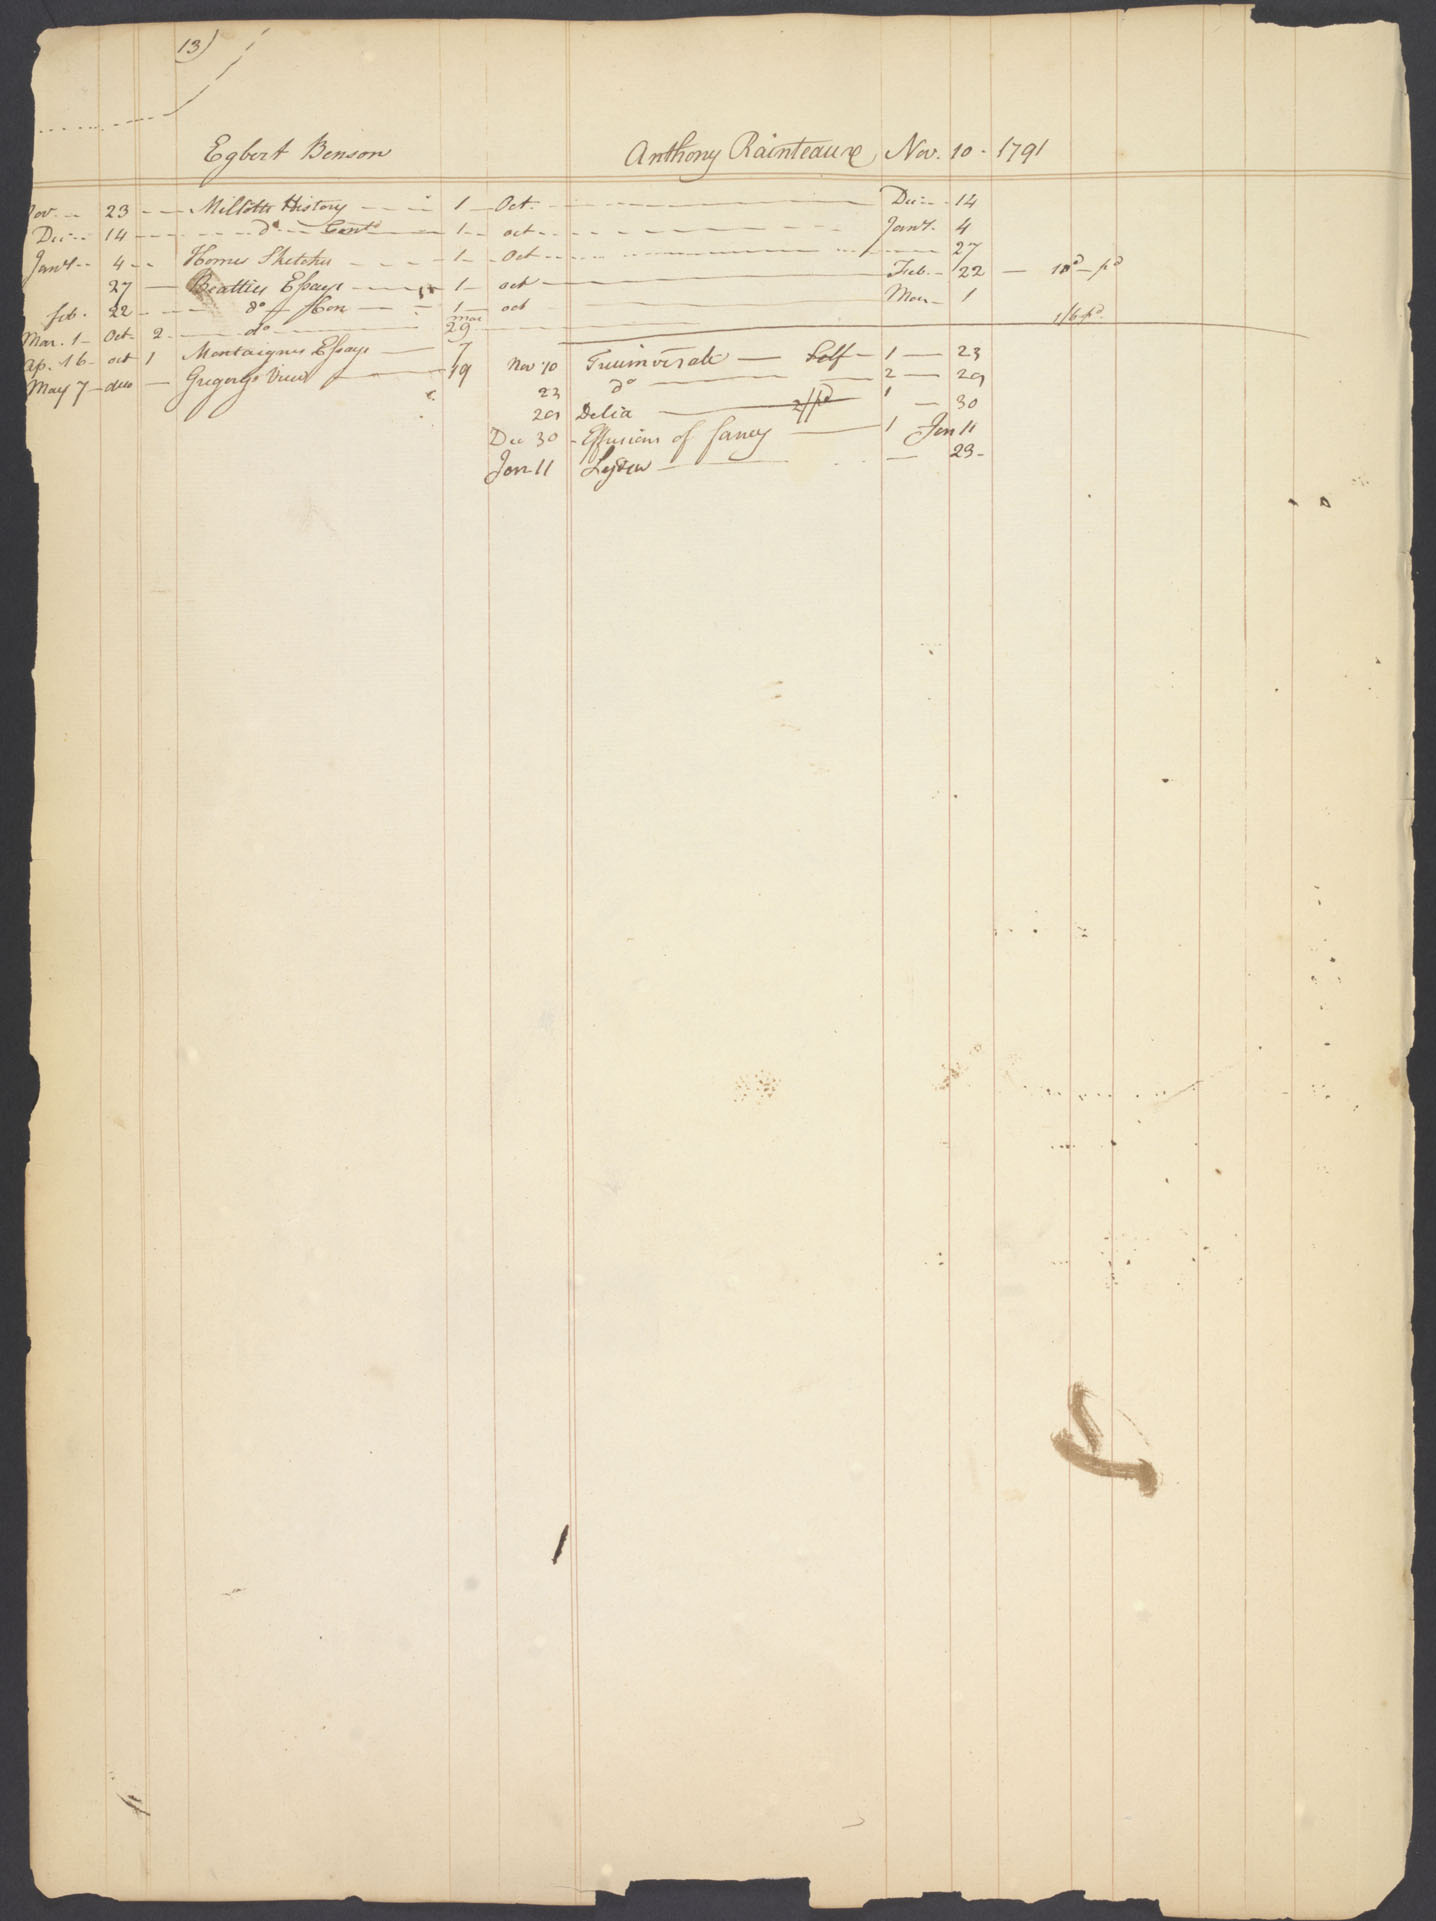 13)
Egbert Benson
Anthony Rainteaux Nov. 10 - 1791
Nov. 23 Millotts History 1 Oct. Dec. 14
Dec. 14 do Cont 1 oct Jany. 4
Jany. 4 Homes Sketches 1 Oct 27
27 Beatties Essays 1 oct Feb. 22 — pd
feb. 22 do 1 oct Mar 1
Mar. 1 Oct 2 do Mar 29 1/6 pd
Ap. 16 oct 1 Montaignes Essays 7
May 7 duo Gregorys View 19
Nov 10 Triumvirate Self 1 23
23 do 2 29
29 Delia 1 30
Dec 30 Effusions of fancy 1 Jan 11
Jan 11 23